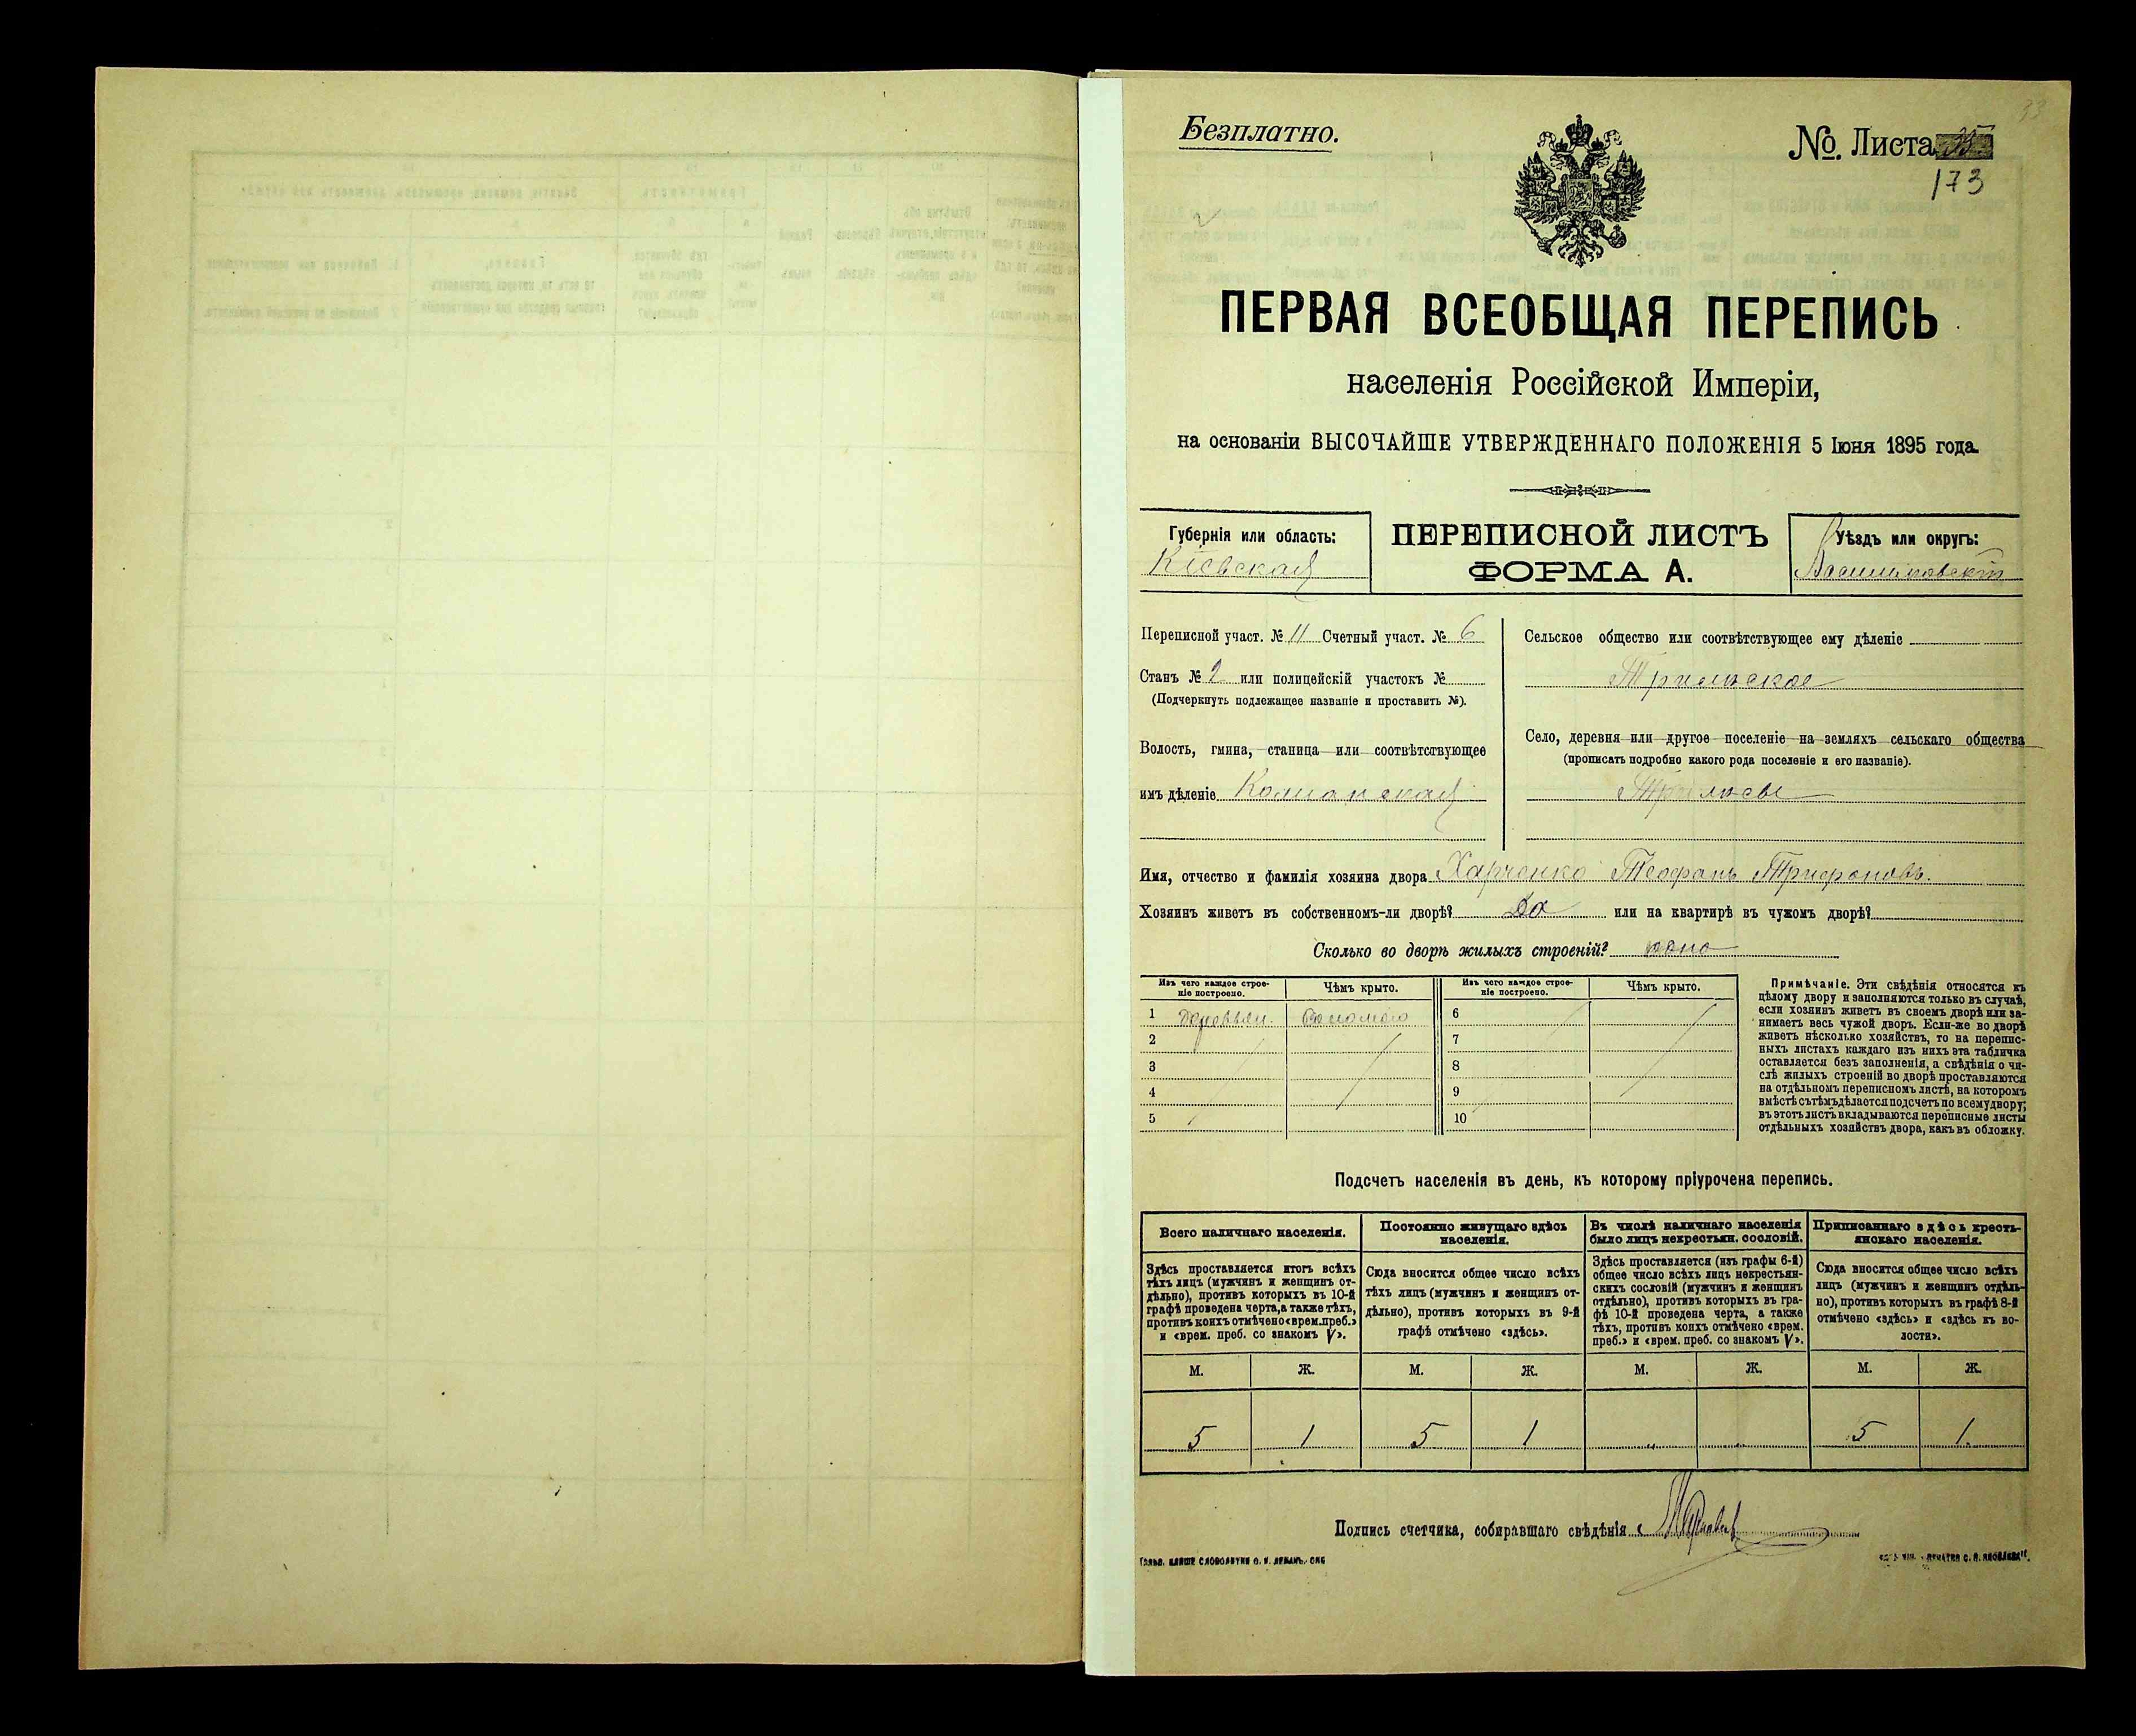 33
Безплатно.
№. Листа
173
ПЕРВАЯ ВСЕОБЩАЯ ПЕРЕПИСЬ
населенія Россійской Имперіи,
на основаніи ВЫСОЧАЙШЕ УТВЕРЖДЕННАГО ПОЛОЖЕНІЯ 5 Іюня 1895 года.
Губернія или область:
Кіевская
ПЕРЕПИСНОЙ ЛИСТЪ
ФОРМА А.
Уѣздъ или округъ:
Васильковскій
Переписной участ. № 11 Счетный участ. № 6
Станъ № 2 или полицейскій участокъ №
(Подчеркнуть подлежащее названіе и проставить №).
Волость, гмина, станица или соотвѣтствующее
имъ дѣленіе
Сельское общество или соотвѣтствующее ему дѣленіе
Трилѣское
Село, деревня или другое поселеніе на земляхъ сельскаго общества
(прописать подробно какого рода поселеніе и его названіе).
Трилѣсы
Имя, отчество и фамилія хозяина двора Харченко Теофанъ Трифоновъ.
Хозяинъ живетъ въ собственномъ-ли дворѣ? Да или на квартирѣ въ чужомъ дворѣ?
Сколько во дворѣ жилыхъ строеній? одно
Изъ чего каждое строеніе построено. Чѣмъ крыто. Изъ чего каждое строеніе построено. Чѣмъ крыто.
1 деревян. Соломою 6
2 7
3 8
4 9
5 10
Примѣчаніе. Эти свѣдѣнія относятся къ
цѣлому двору и заполняются только въ случаѣ,
если хозяинъ живетъ въ своемъ дворѣ или за-
нимаетъ весь чужой дворъ. Если-же во дворѣ
живетъ нѣсколько хозяйствъ, то на перепис-
ныхъ листахъ каждаго изъ нихъ эта табличка
оставляется безъ заполненія, а свѣдѣнія о чи-
слѣ жилыхъ строеній во дворѣ проставляются
на отдѣльномъ переписномъ листѣ, на которомъ
вмѣстѣ съ тѣмъ дѣлается подсчетъ по всему двору;
въ этотъ листъ вкладываются переписные листы
отдѣльныхъ хозяйствъ двора, какъ въ обложку.
Подсчетъ населенія въ день, къ которому пріурочена перепись.
Всего наличнаго населенія.
Здѣсь проставляется итогъ всѣхъ
тѣхъ лицъ (мужчинъ и женщинъ от-
дѣльно), противъ которыхъ въ 10-й
графѣ проведена черта, а также тѣхъ,
противъ коихъ отмѣчено «врем. преб.»
и «врем. преб. со знакомъ V».
Постоянно живущаго здѣсь
населенія.
Сюда вносится общее число всѣхъ
тѣхъ лицъ (мужчинъ и женщинъ от-
дѣльно), противъ которыхъ въ 9-й
графѣ отмѣчено «здѣсь».
Въ числѣ наличнаго населенія
было лицъ некрестьян. сословій.
Здѣсь проставляется (изъ графы 6-й)
общее число всѣхъ лицъ некрестьян-
скихъ сословій (мужчинъ и женщинъ
отдѣльно), противъ которыхъ въ гра-
фѣ 10-й проведена черта, а также
тѣхъ, противъ коихъ отмѣчено «врем.
преб.» и «врем. преб. со знакомъ V».
Приписаннаго здѣсь кресть-
янскаго населенія.
Сюда вносится общее число всѣхъ
лицъ (мужчинъ и женщинъ отдѣль-
но), противъ которыхъ въ графѣ 8-й
отмѣчено «здѣсь» и «здѣсь къ во-
лости».
М. Ж. М. Ж. М. Ж. М. Ж.
5 1 5 1 „ „ 5 1
Подпись счетчика, собиравшаго свѣдѣнія